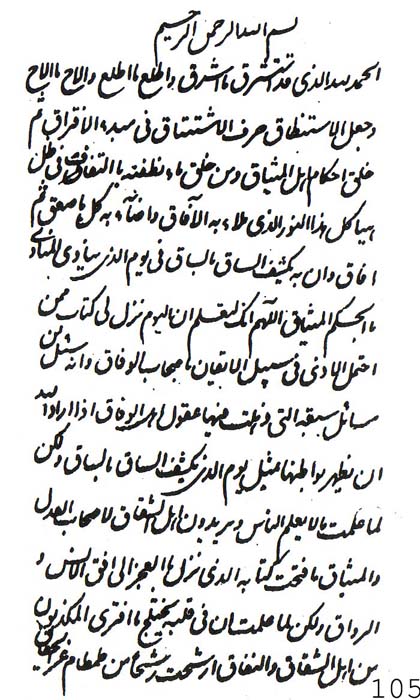 بسم الله الرحمن الرحيم
الحمد لله الذى قد استشرق ما اشرق و اطلع ما اطلع و الاح ما الاح
و جعل الاستنطاق حرف الاشتقاق فى مبدء الافراق ثم
خلق احكام اهل الميثاق و من خلق ماء نطفته ما التفاق فى ظل
هيا كل هذا النور الذى ملاء به الآفاق و اضاء به كل ما صعق ثم
افاق و ان به يكشف الساق بالساق فى يوم الذى ينادى المناد
ما الحكم الميثاق اللهم انك لتعلم ان اليوم نزل لى كتاب ممن
احتمل الاذى فى سبيل السابقين باصحاب الوفاق و انه سئل من
مسائل سبعة التى ذهلت منها عقول اهل الوفاق اذا اراد الله
ان يظهر بواطنها بمثل يوم الذى يكشف الساق بالساق ولكن
لما علمت ما لا يعلم الناس و يريدون اهل الشقاق لاصحاب العدل
و الميثاق ما فتحت كتابه الذى نزل ما العجز الى افق الانس و
الرواق ولكن لما علمت ان فى قلبه يختلج ما افترى المكذبون
من اهل الشقاق و النفاق ارشحت رشحا من طمطام
105